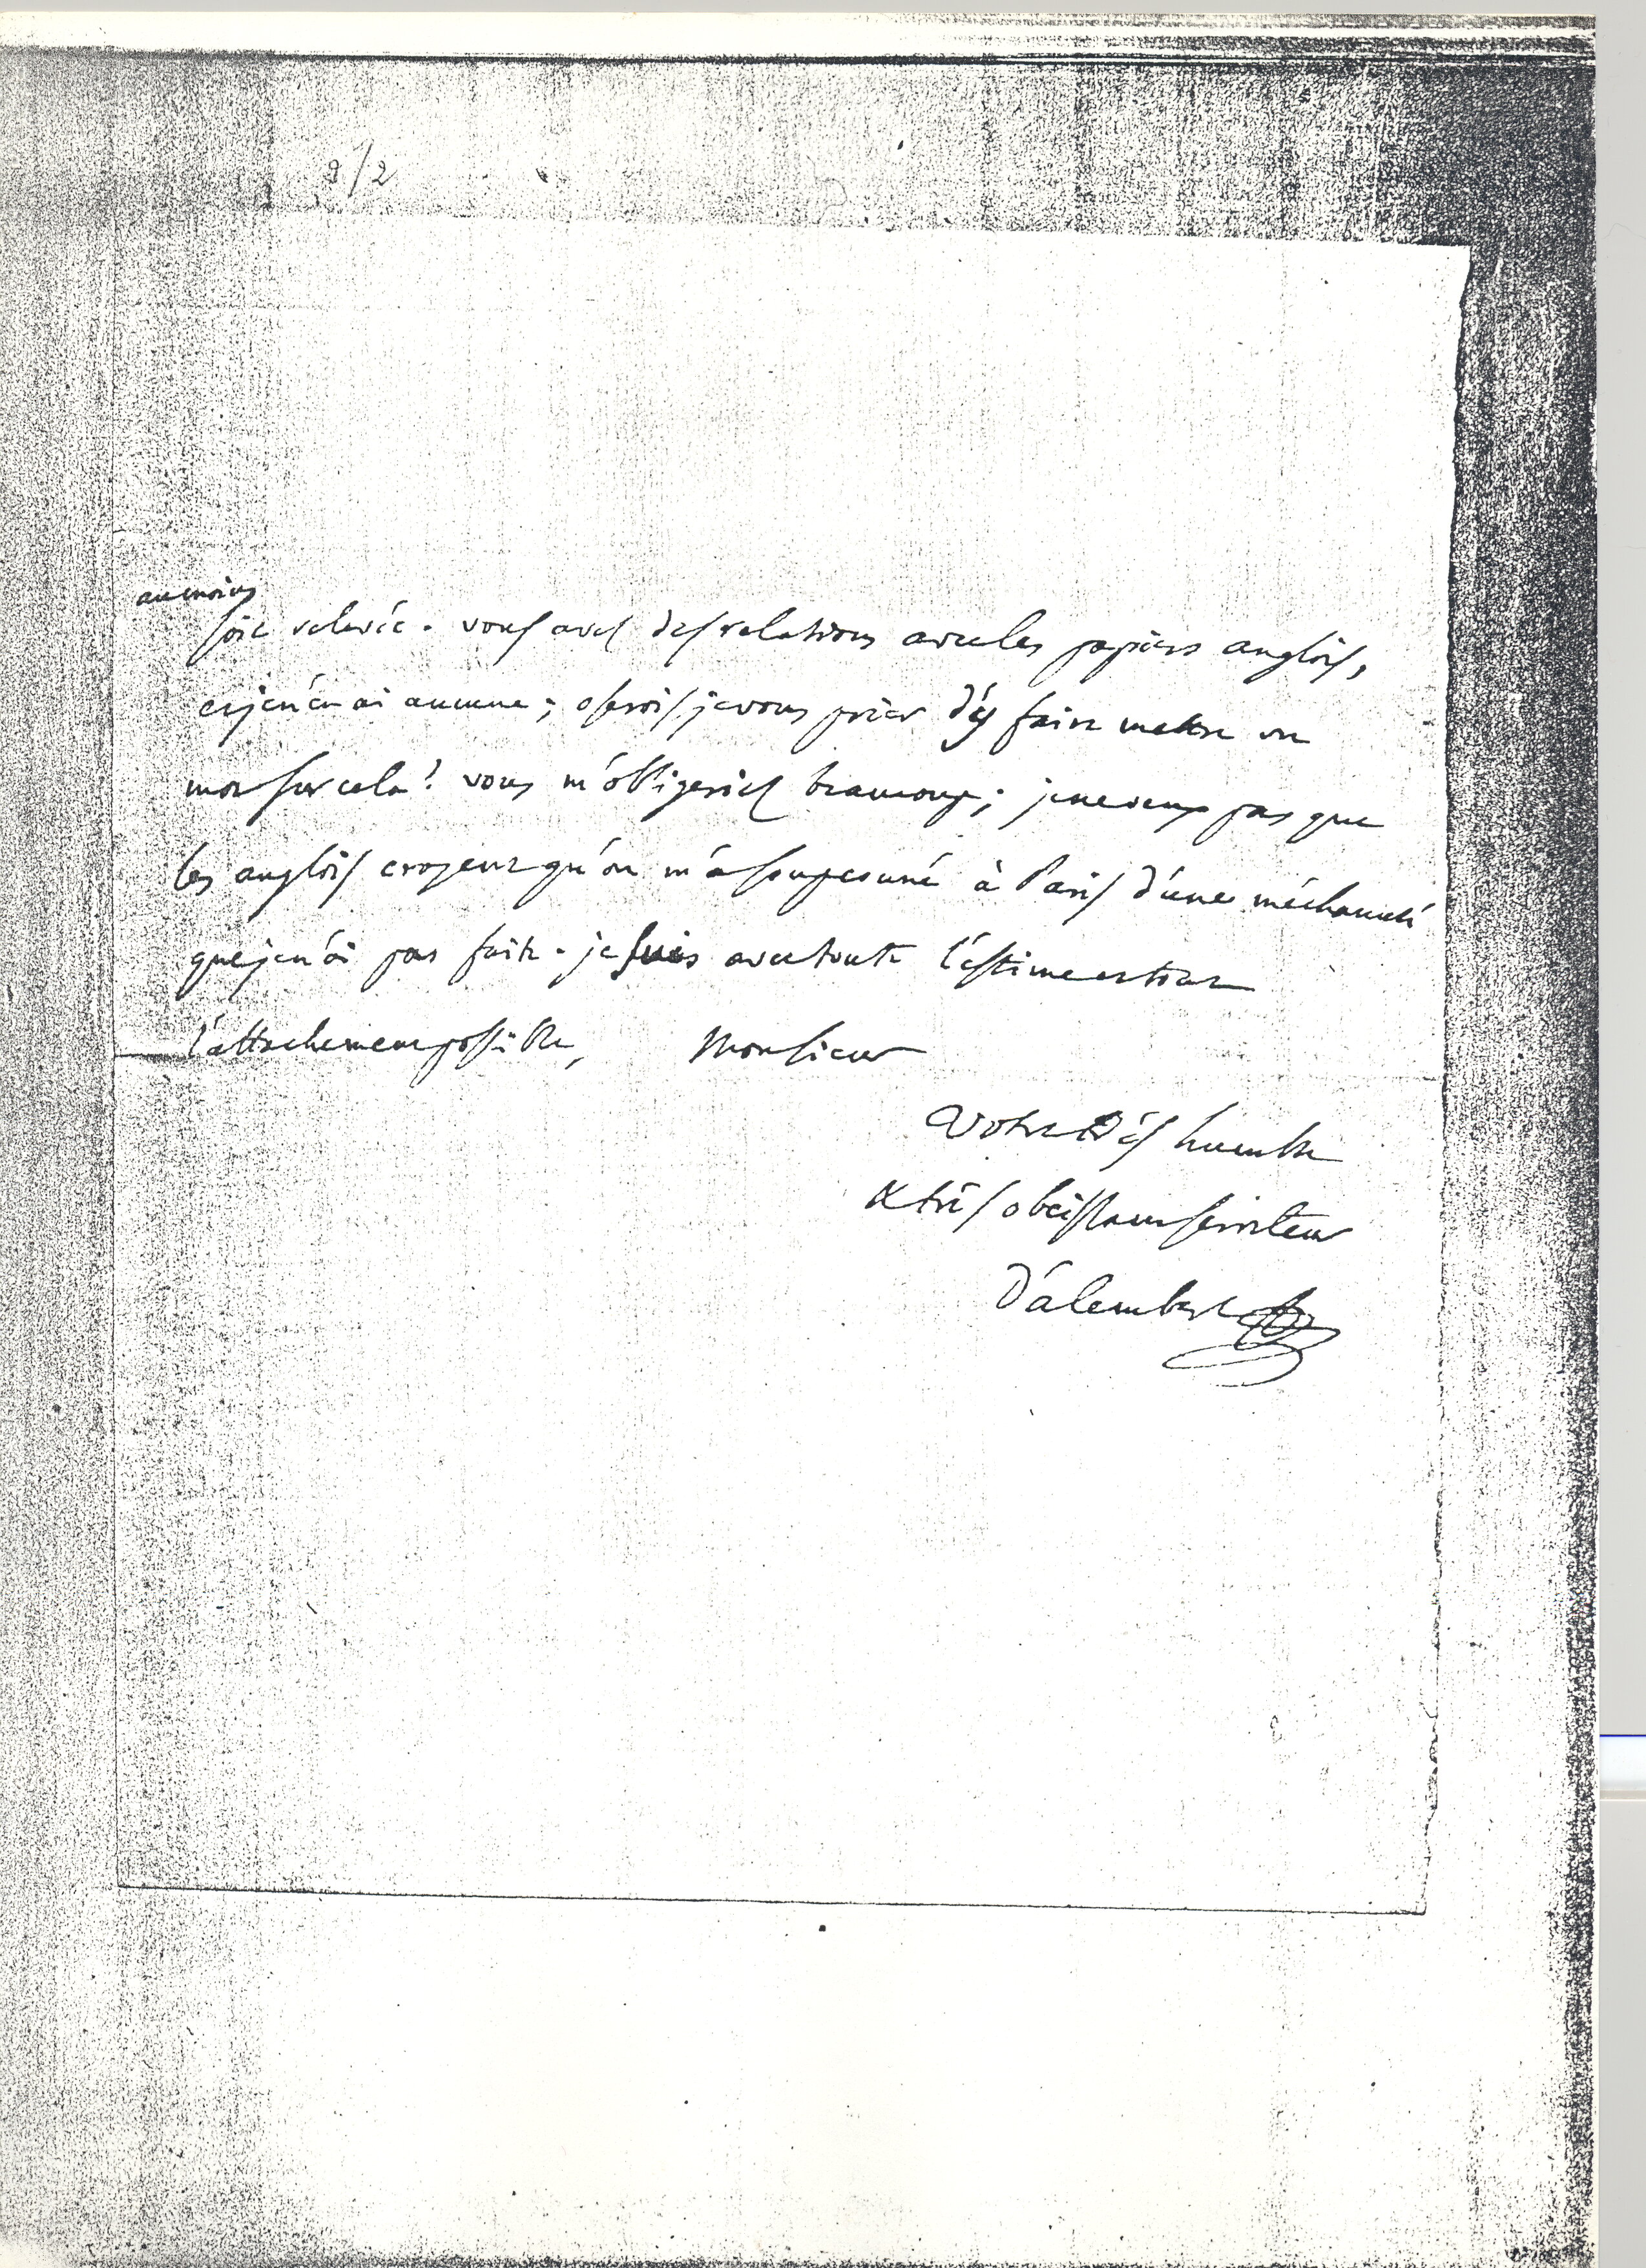 9/2
au moins
soit relevée. vous avez des relations avec les papiers anglois,
et je n'en ai aucune; oserois-je vous prier d'y faire mettre un
mot sur cela? vous m'obligeriez beaucoup; je ne veux pas que
les anglois croyent qu'on m'a soupçonné à Paris d'une méchanceté
que je n'ai pas faite. je suis avec toute l'estime et tout
l'attachement possible, Monsieur
Votre très humble
& très obéissant serviteur
D'alembert